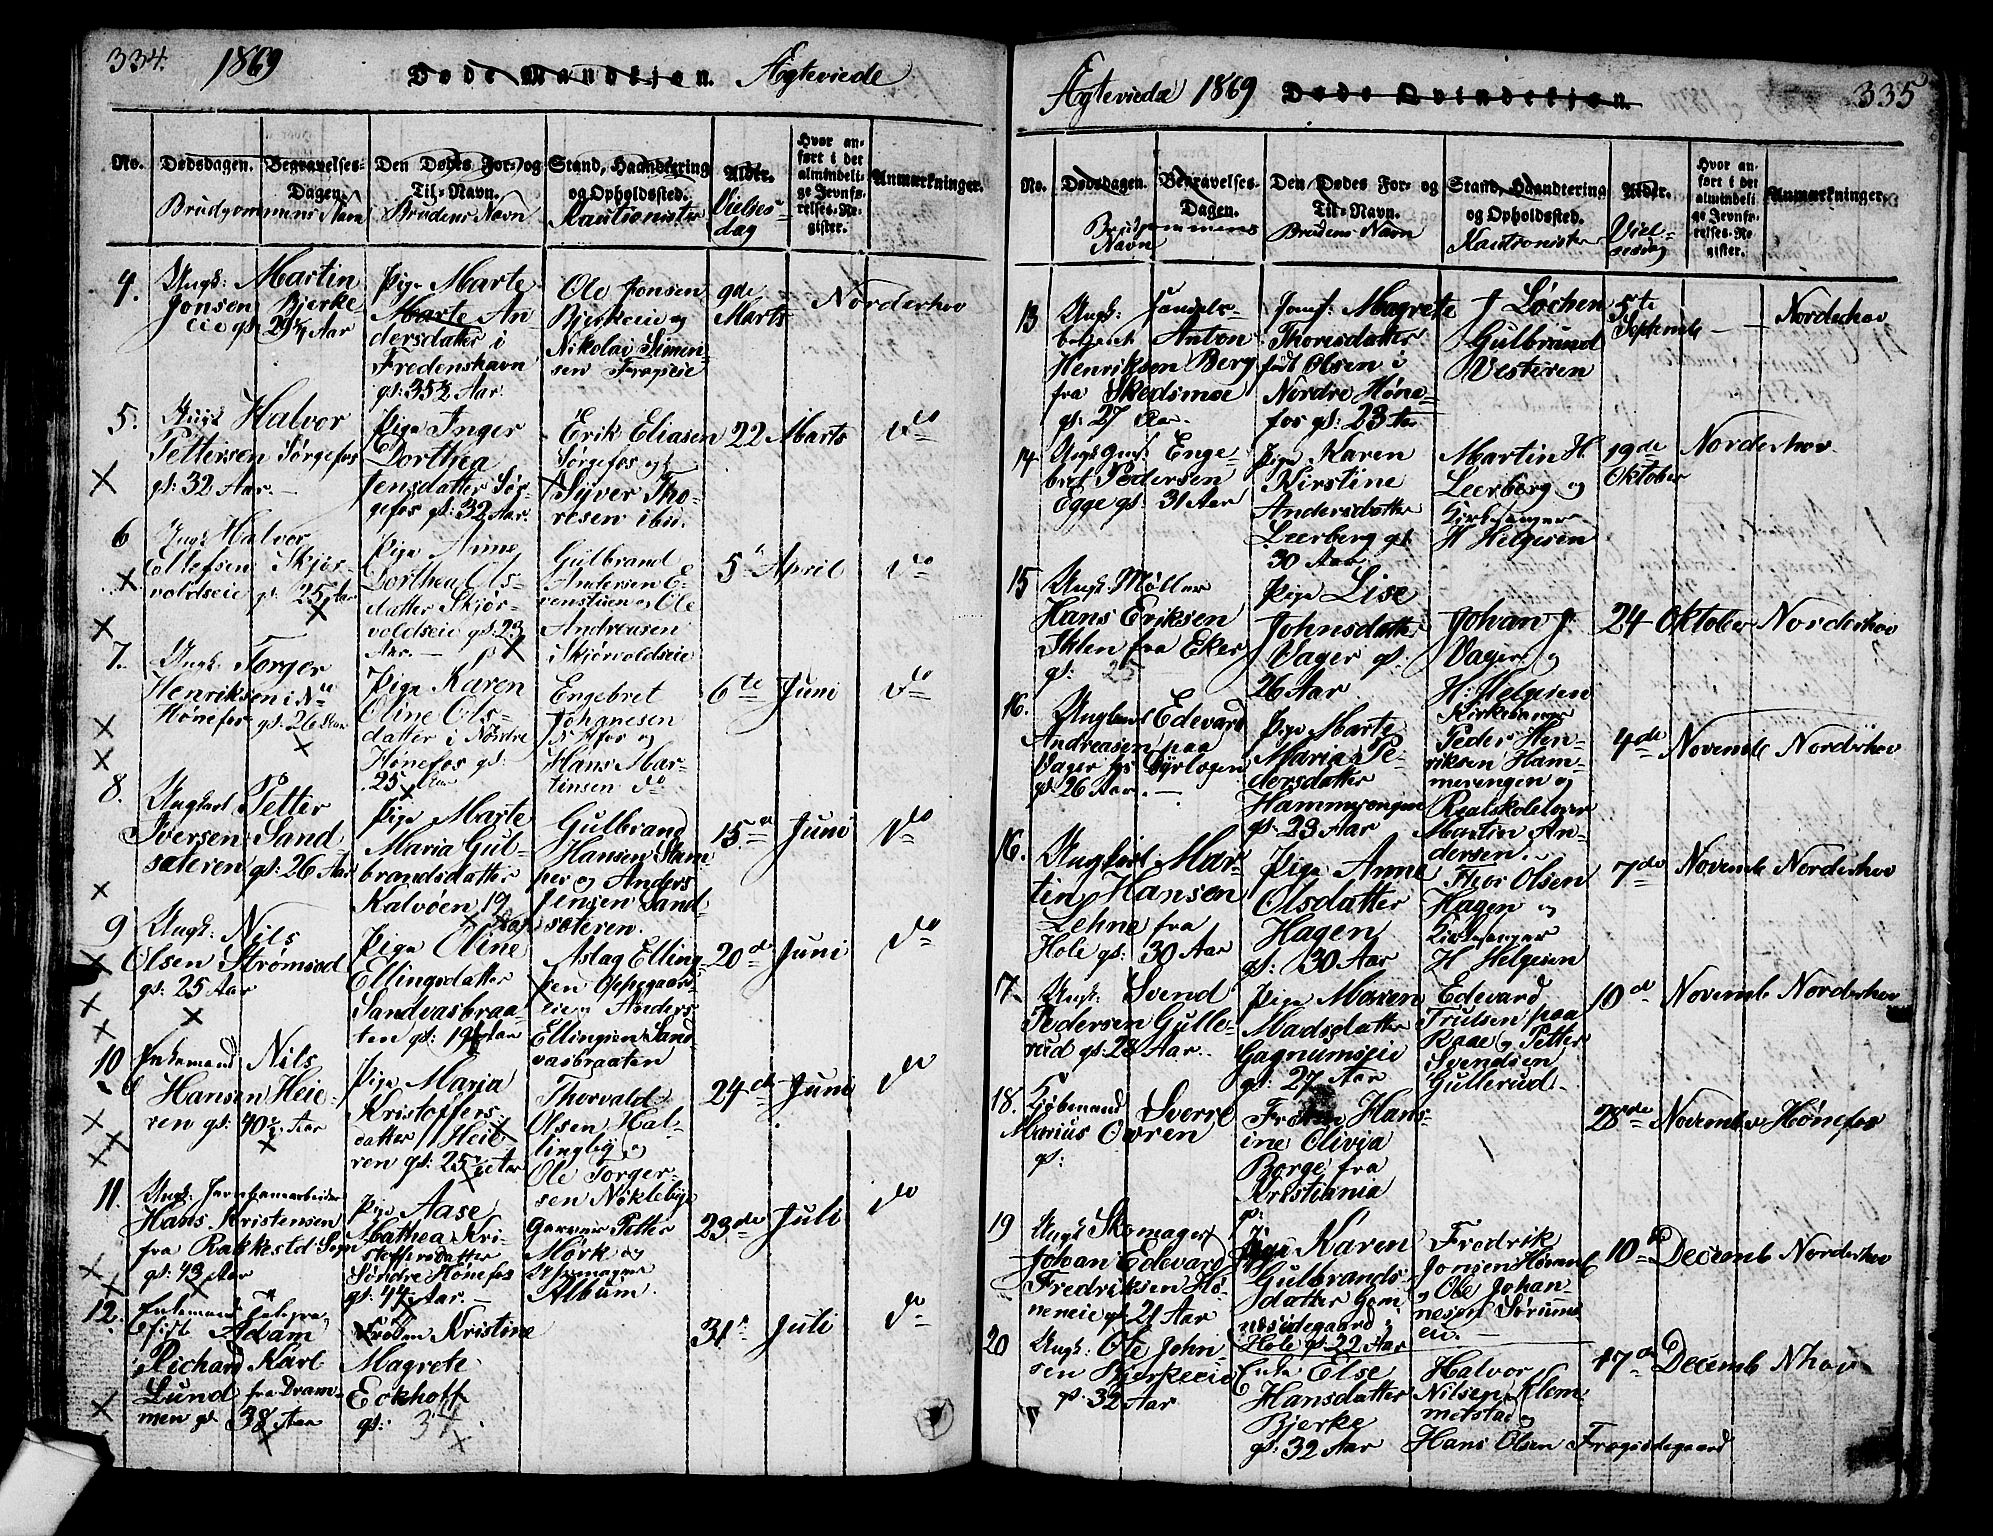 334. 1869 Døde Mandkjøn. Ægteviede
No. Dødsdagen. Begravelses-Dagen. Den Dødes For- og Til-Navn. Stand, Haandtering og Opholdssted. Alder. Hvor anført i det almindelige Jevnførelses-Register. Anmærkninger.
Brudgommens Navn Brudens Navn Kautionister Vielsesdag
4. Ungk: Martin
Jonsen Bjerke
eie gs: 29¼ Aar
Pige Marte
Marte An
dersdatter i
Fredenshavn
gs: 35½ Aar.
Ole Jonsen
Bjerkeeie og
Nikolai Simen-
sen
9de
Marts
Norderhov
5. Ungk Halvor
Pettersen Sørgefos
gs: 32 Aar. —
Pige Inger
Dorthea
Jensdatter Sør-
gefos gs: 32 Aar.
Erik Eliasen
Sørgefos og
Syver Tho-
resen ibid.
22 Marts
do
6 Ungk Halvor
Ellefsen Skjør-
voldseie gs: 25 Aar
Pige Anne
Dorthea Ols-
datter Skjør-
voldseie gs: 23
Aar. —
Gulbrand
Andersen E-
venstuen og Ole
Andreasen
Skjørvoldseie
5te April
do
7. Ungk: Torger
Henriksen i Nre
Hønefos gs: 26 Aar
Pige Karen
Oline Ols-
datter i Nordre
Hønefos gs:
25 Aar
Engebret
Johanesen
og
Hans Mar-
tinsen do
6te Juni
do
8. Ungkarl Petter
Iversen Sand-
sæteren gs: 26 Aar
Pige Marte
Maria Gul-
brandsdatter
Kalvøen 19
Aar
Gulbrand
Hansen Stam
per og Anders
Jensen Sand-
sæteren.
15de Juni
do
9 Ungk: Nils
Olsen Strømsod
gs: 25 Aar
Pige Oline
Ellingsdatter
Sandvasbraa-
ten gs: 19¼ Aar
Aslag Elling-
sen Oppegaar-
eie og Anders
Ellingsen Sand-
vasbraaten
20de Juni
do
10 Enkemand Nils
Hansen Heie-
ren gs: 40½ Aar
Pige Maria
Kristoffers-
datter Heie-
ren gs: 25 Aar
Thorvald
Olsen Hal-
lingby og
Ole Torger-
sen Nøklebye
24de Juni
do
11. Ungk: Jernbanearbeider
Hans Kristensen
fra Rakkestad Sogn
gs: 43 Aar
Pige Aase
Mathea Kri-
stoffersdatter
Søndre Hønefos
gs: 44 Aar. —
Garver Petter
Mørk og
Album.
23de Juli
do
12. Enkemand Telegra-
fist Adam
Richard Karl
Lund fra Dram-
men gs. 38 Aar
Frøken Kristine
Magrete
Eckhoff
gs: 34.
31te Juli
do
Ægteviede 1869 Døde Qvindekjøn. 335
No. Dødsdagen. Begravelses-Dagen. Den Dødes For- og Til-Navn. Stand, Haandtering og Opholdssted. Alder. Hvor anført i det almindelige Jevnførelses-Register. Anmærkninger.
Brudgommens Navn Brudens Navn Kautionister Vielsesdag
13 Ungk: Handels-
betjent Anton
Henriksen Berg
fra Skedsmoe
gs: 27 Aar.
Jomf: Magrete
Thorisdatter
født Olsen i
Nordre Høne-
fos gs: 23 Aar
J Løchen
Gulbrand
Vesteren
5te
Septembr
Norderhov
14 Ungk Gmd Enge-
bret Pedersen
Egge gs: 31 Aar
Pige Karen
Kirstine
Andersdatter
Leerberg gs
30 Aar
Martin H.
Leerberg og
Kirkesanger
H Helgesen
19de
Oktober
Norderhov
15 Ungk: Møller
Hans Eriksen
Iklen fra Eker
gs: 25
Pige Lise
Johnsdatte
Vager gs:
26 Aar
Johan J
Vager og
H: Helgesen
Kirkesanger
24 Oktober
Norderhov
16. Ungkarl Edevard
Andreasen paa
Vager gs Byrlogen
gs: 26 Aar. —
Pige Marte
Maria Pe-
dersdatter
Hammerengen
gs: 23 Aar
Peder Hen-
riksen Ham-
merengen og
Realskolelærer
Martin An-
dersen.
4de Novemb
Norderhov
16. Ungkarl Mar-
tin Hansen
Lehne fra
Hole gs: 30 Aar
Pige Anne
Olsdatter
Hagen
gs: 30 Aar
Thor Olsen
Hagen og
Kirkesanger
H Helgesen
7de Novemb
Norderhov
17. Ungk: Svend
Pedersen Gulle-
rud gs: 28 Aar.
Pige Maren
Madsdatter
Gagnumseie
gs: 27 Aar
Edevard
Trulsen paa
Raae og Petter
Svendsen
Gullerud.
10de Novemb
Norderhov
18. Kjøbmand Sverre
Marius Ovren
gs:
Frøken Hans-
ine Olivia
Borge fra
Kristiania
gs:
28de Novembr
Hønefos
19 Ungk Skomager
Johan Edevard
Fredriksen Hø-
neneie gs: 21 Aar
Pige Karen
Gulbrands-
datter Gom
nesødegaard
Hole gs 22 Aar
Fredrik
Jonsen Hønen
og Ole Johan-
nesen Sørums
ei.
10de Decemb
Norderhov
20 Ungk: Ole John-
sen Bjerkeeie
gs: 32 Aar
Enke Else
Hansdatter
Bjerke
gs: 32 Aar
Halvor
Nilsen Klem-
metstad og
Hans Olsen Frogsødegaard
17de Decemb
Nhov